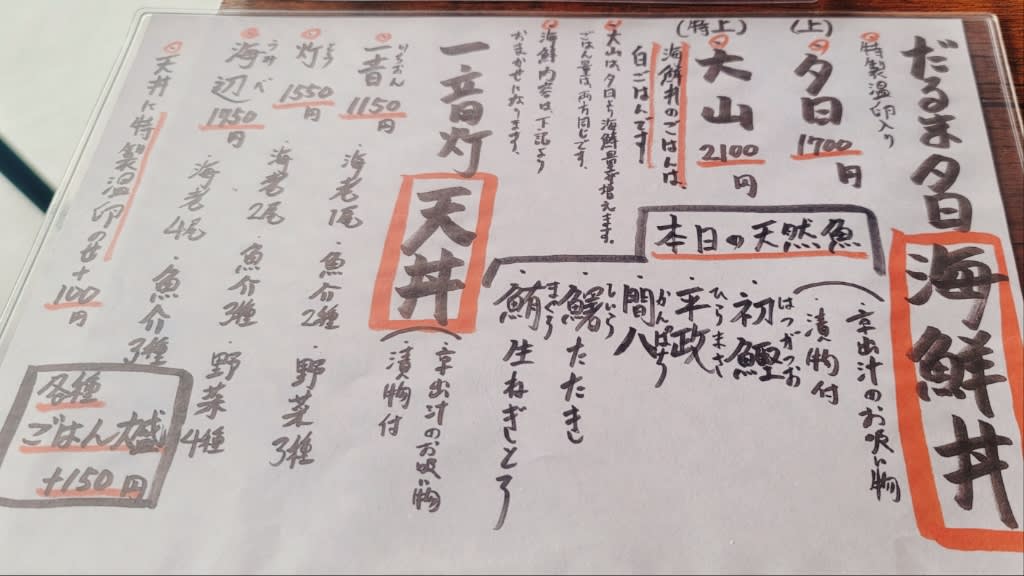 だるま夕日海鮮丼
(京出汁のお吸い物
・漬物付
特製温卵入り
(上)
夕日
1700円
(特上)
大山
2100円
海鮮丼のごはんは、
白ごはんです
大山は夕日より海鮮量が増えます。
ごはん量は、両方同じです。
海鮮内容は、下記より
おまかせになります。
本日の天然魚
・初鰹
はつがつお
・平政
ひらまさ
・間八
かんぱち
・鱰たたき
しいら
・鮪生ねぎとろ
まぐろ
一音灯天丼
(・京出汁のお吸い物
・漬物付
一音
いちおん
1150円
・海老1尾
・魚介2種
・野菜3種
灯
とう
1550円
・海老2尾
・魚介3種
・野菜4種
海辺
うみべ
1750円
・海老4尾
・魚介3種
天丼に特製温卵のせ+100円
各種
ごはん大盛
+150円